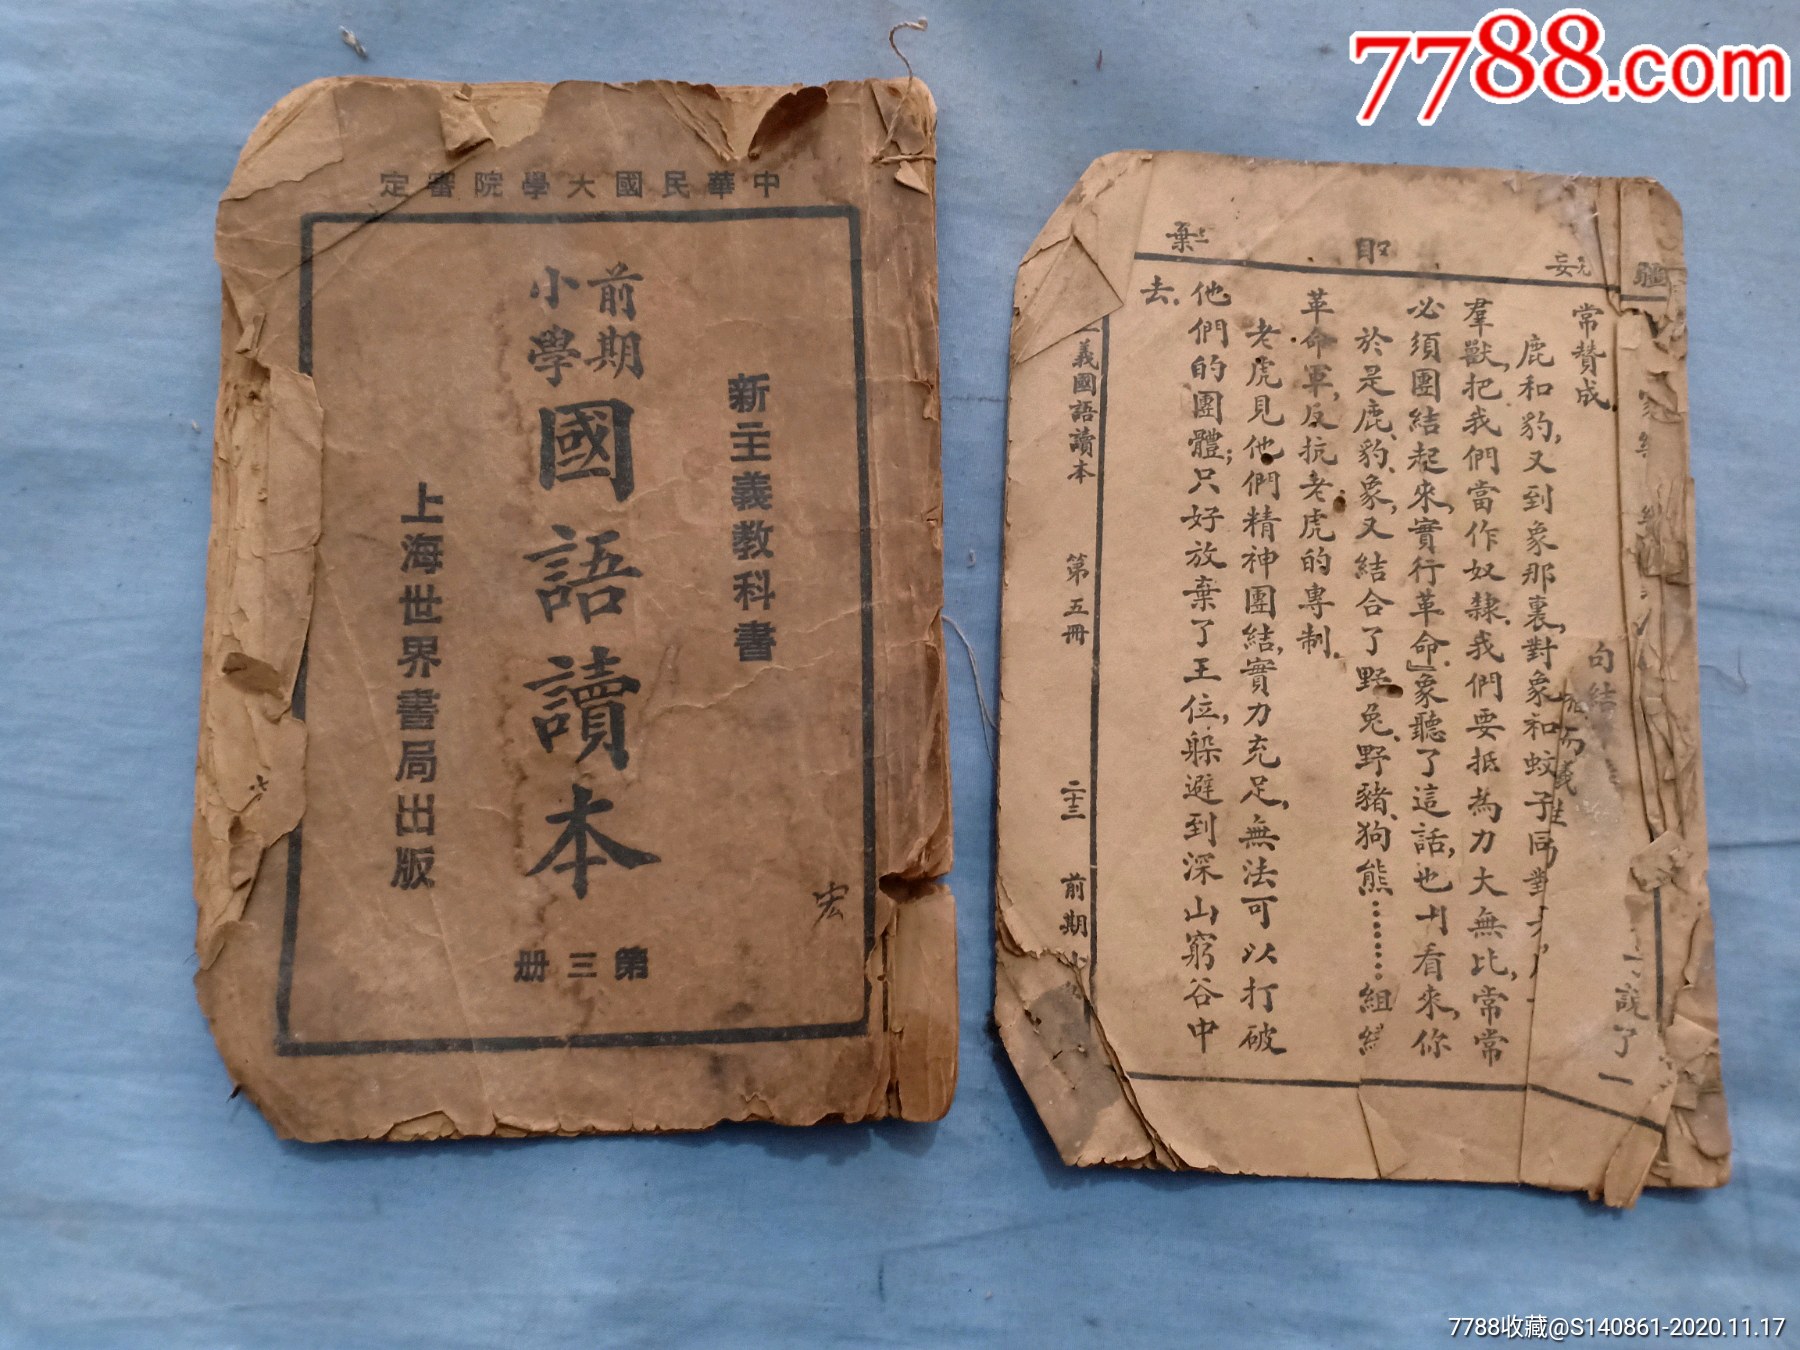 7788.com
中華民國大學院審定
新主義教科書
前期
小學
國語讀本
第三冊
上海世界書局出版
宏
疆
取
棄
常贊成.
鹿和豹,又到象那裏,對象和蚊子同
羣獸,把我們當作奴隸.我們要抵
為力大無比,常常
必須團結起來,實行革命.』象聽了這話,也
看來,你
於是鹿、豹、象,又結合了野兔、野豬、狗熊………組
革命軍,反抗老虎的專制.
老虎見他們精神團結,實力充足,無法可以打破
他們的團體;只好放棄了王位,躲避到深山窮谷中
去.
義國語讀本
第五冊
二十三
前期
句結
說了一
7788收藏@S140861-2020.11.17